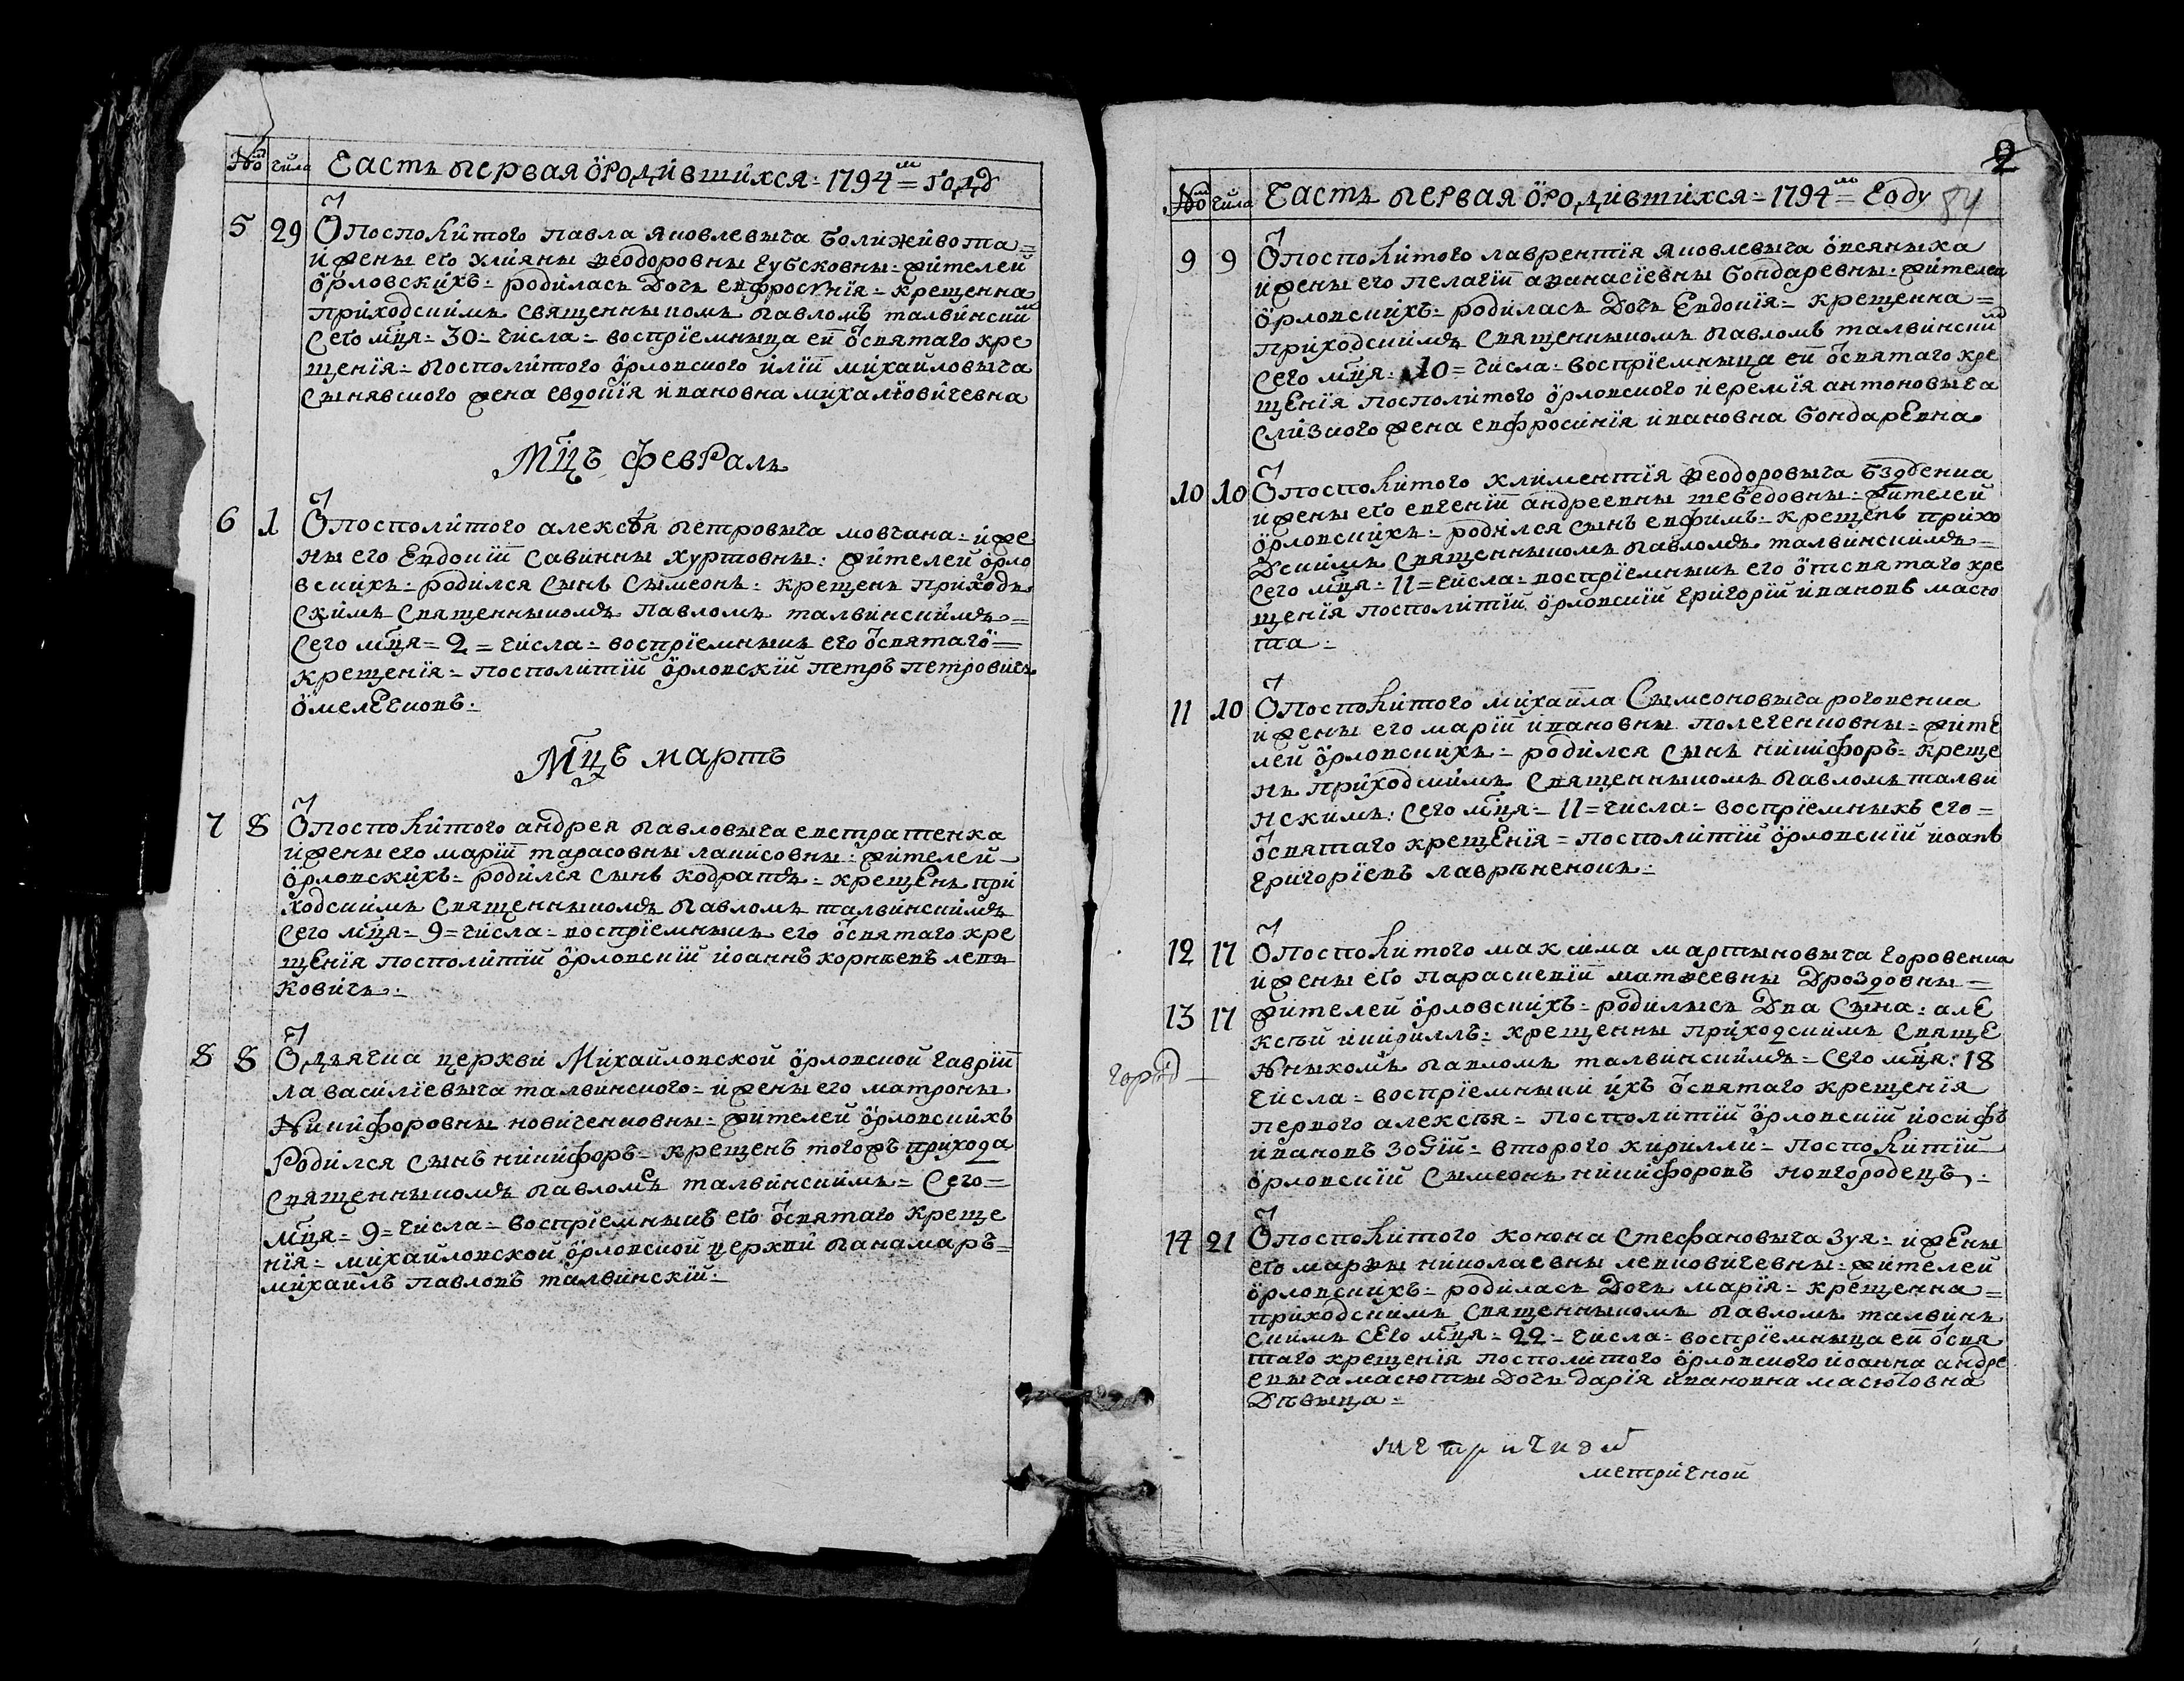 № числа Часть первая о родившихся = 1794 м = годд
5 29 У посполитого павла яковлевыча болиживота =
и жены его улияны феодоровны губсковны = жителей
орловскихъ = родилась дочь евфросинія = крещенна
приходскимъ священныкомъ павломъ талвинским
сего мця = 30 = числа = воспріемныца ей о святаго кре
щенія = посполитого орловского иліи михайловыча
сынявского жена евдокія ивановна михаловичевна
Мцъ февраль
6 1 У посполитого алексѣя петровыча мовчана = и же
ны его Евдокіи савинны хуртовны : жителей орло
вскихъ = родился сынъ сымеонъ : крещенъ приходъ
скимъ священныкомъ павломъ талвинскимъ =
сего мця = 2 = числа = воспріемныкъ его о святаго =
крещенія = посполитій орловскій петръ петровичъ
омелечковъ :
Мцъ мартъ
7 8 У посполитого андрея павловыча евстратенка
и жены его маріи тарасовны лаписовны : жителей
орловскихъ = родился сынъ кодратъ = крещенъ при
ходскимъ священныкомъ павломъ талвинскимъ
сего мця = 9 = числа = воспріемныкъ его о святаго кре
щенія посполитій орловскій іоаннъ корнѣевъ левъ
ковичъ :
8 8 У дьячка церкви Михайловской орловской гавріи
ла василіевыча талвинского = и жены его матроны
Никифоровны новиченковны = жителей орловскихъ
Родился сынъ никифоръ = крещенъ тогожъ прихода
священныкомъ павломъ талвинскимъ = сего =
мця = 9 = числа = воспріемныкъ его о святаго креще
нія = михайловской орловской церкви панамаръ =
михаилъ павловъ талвинскій :
2
84
№ числа Часть первая о родившихся = 1794 м = Году
9 9 У посполитого лаврентія яковлевыча овсяныка
и жены его пелагіи афанасіевны бондаревны = жителей
орловскихъ = родилась дочь Евдокія = крещенна =
приходскимъ священныкомъ павломъ талвинским
сего мця = 10 = числа = воспріемныца ей о святаго кре
щенія посполитого орловского иеремія антоновыча
слизкого жена евфросинія ивановна бондаревна
10 10 У посполитого климентія феодоровыча бздренка
и жены его евгеніи андреевны шебедовны = жителей
орловскихъ = родился сынъ евфимъ = крещенъ прихо
дскимъ священныкомъ павломъ талвинскимъ =
сего мця = 11 = числа = воспріемныкъ его от святаго кре
щенія посполитій орловскій григорій ивановъ масю
та =
11 10 У посполитого михаила Сымеоновыча роговенка
и жены его маріи ивановны полегенковны = жите
лей орловскихъ = родился сынъ никифоръ = креще
нъ приходскимъ священныкомъ павломъ талви
нскимъ : сего мця = 11 = числа = воспріемныкъ его =
о святаго крещенія = посполитій орловскій иоанъ
григоріевъ лаврѣненокъ :
12 17 У посполитого максима мартыновыча боровенка
и жены его парасиевіи матвеевны дроздовны =
13 17 жителей орловскихъ = родилысь два сына : але
ксѣй и кириллъ : крещенны приходскимъ свяще
нныкомъ павломъ талвинскимъ = сего мця : 18
числа = воспріемныки ихъ о святаго крещенія
первого алексѣя = посполитій орловскій иосифъ
ивановъ зозій : второго кирилли = посполитій
орловскій сымеонъ никифоровъ новгородецъ :
14 21 У посполитого конона стефановыча зуя = и жены
его марѳы николаевны левковичевны = жителей
орловскихъ = родилась дочь марія = крещенна =
приходскимъ священныкомъ павломъ талвинъ
скимъ сего мця = 22 = числа = воспріемныца ей о свя
таго крещенія посполитого орловского иоанна андре
евыча масюты дочь дарія ивановна масютовна
дѣвыца =
метричной
метричной